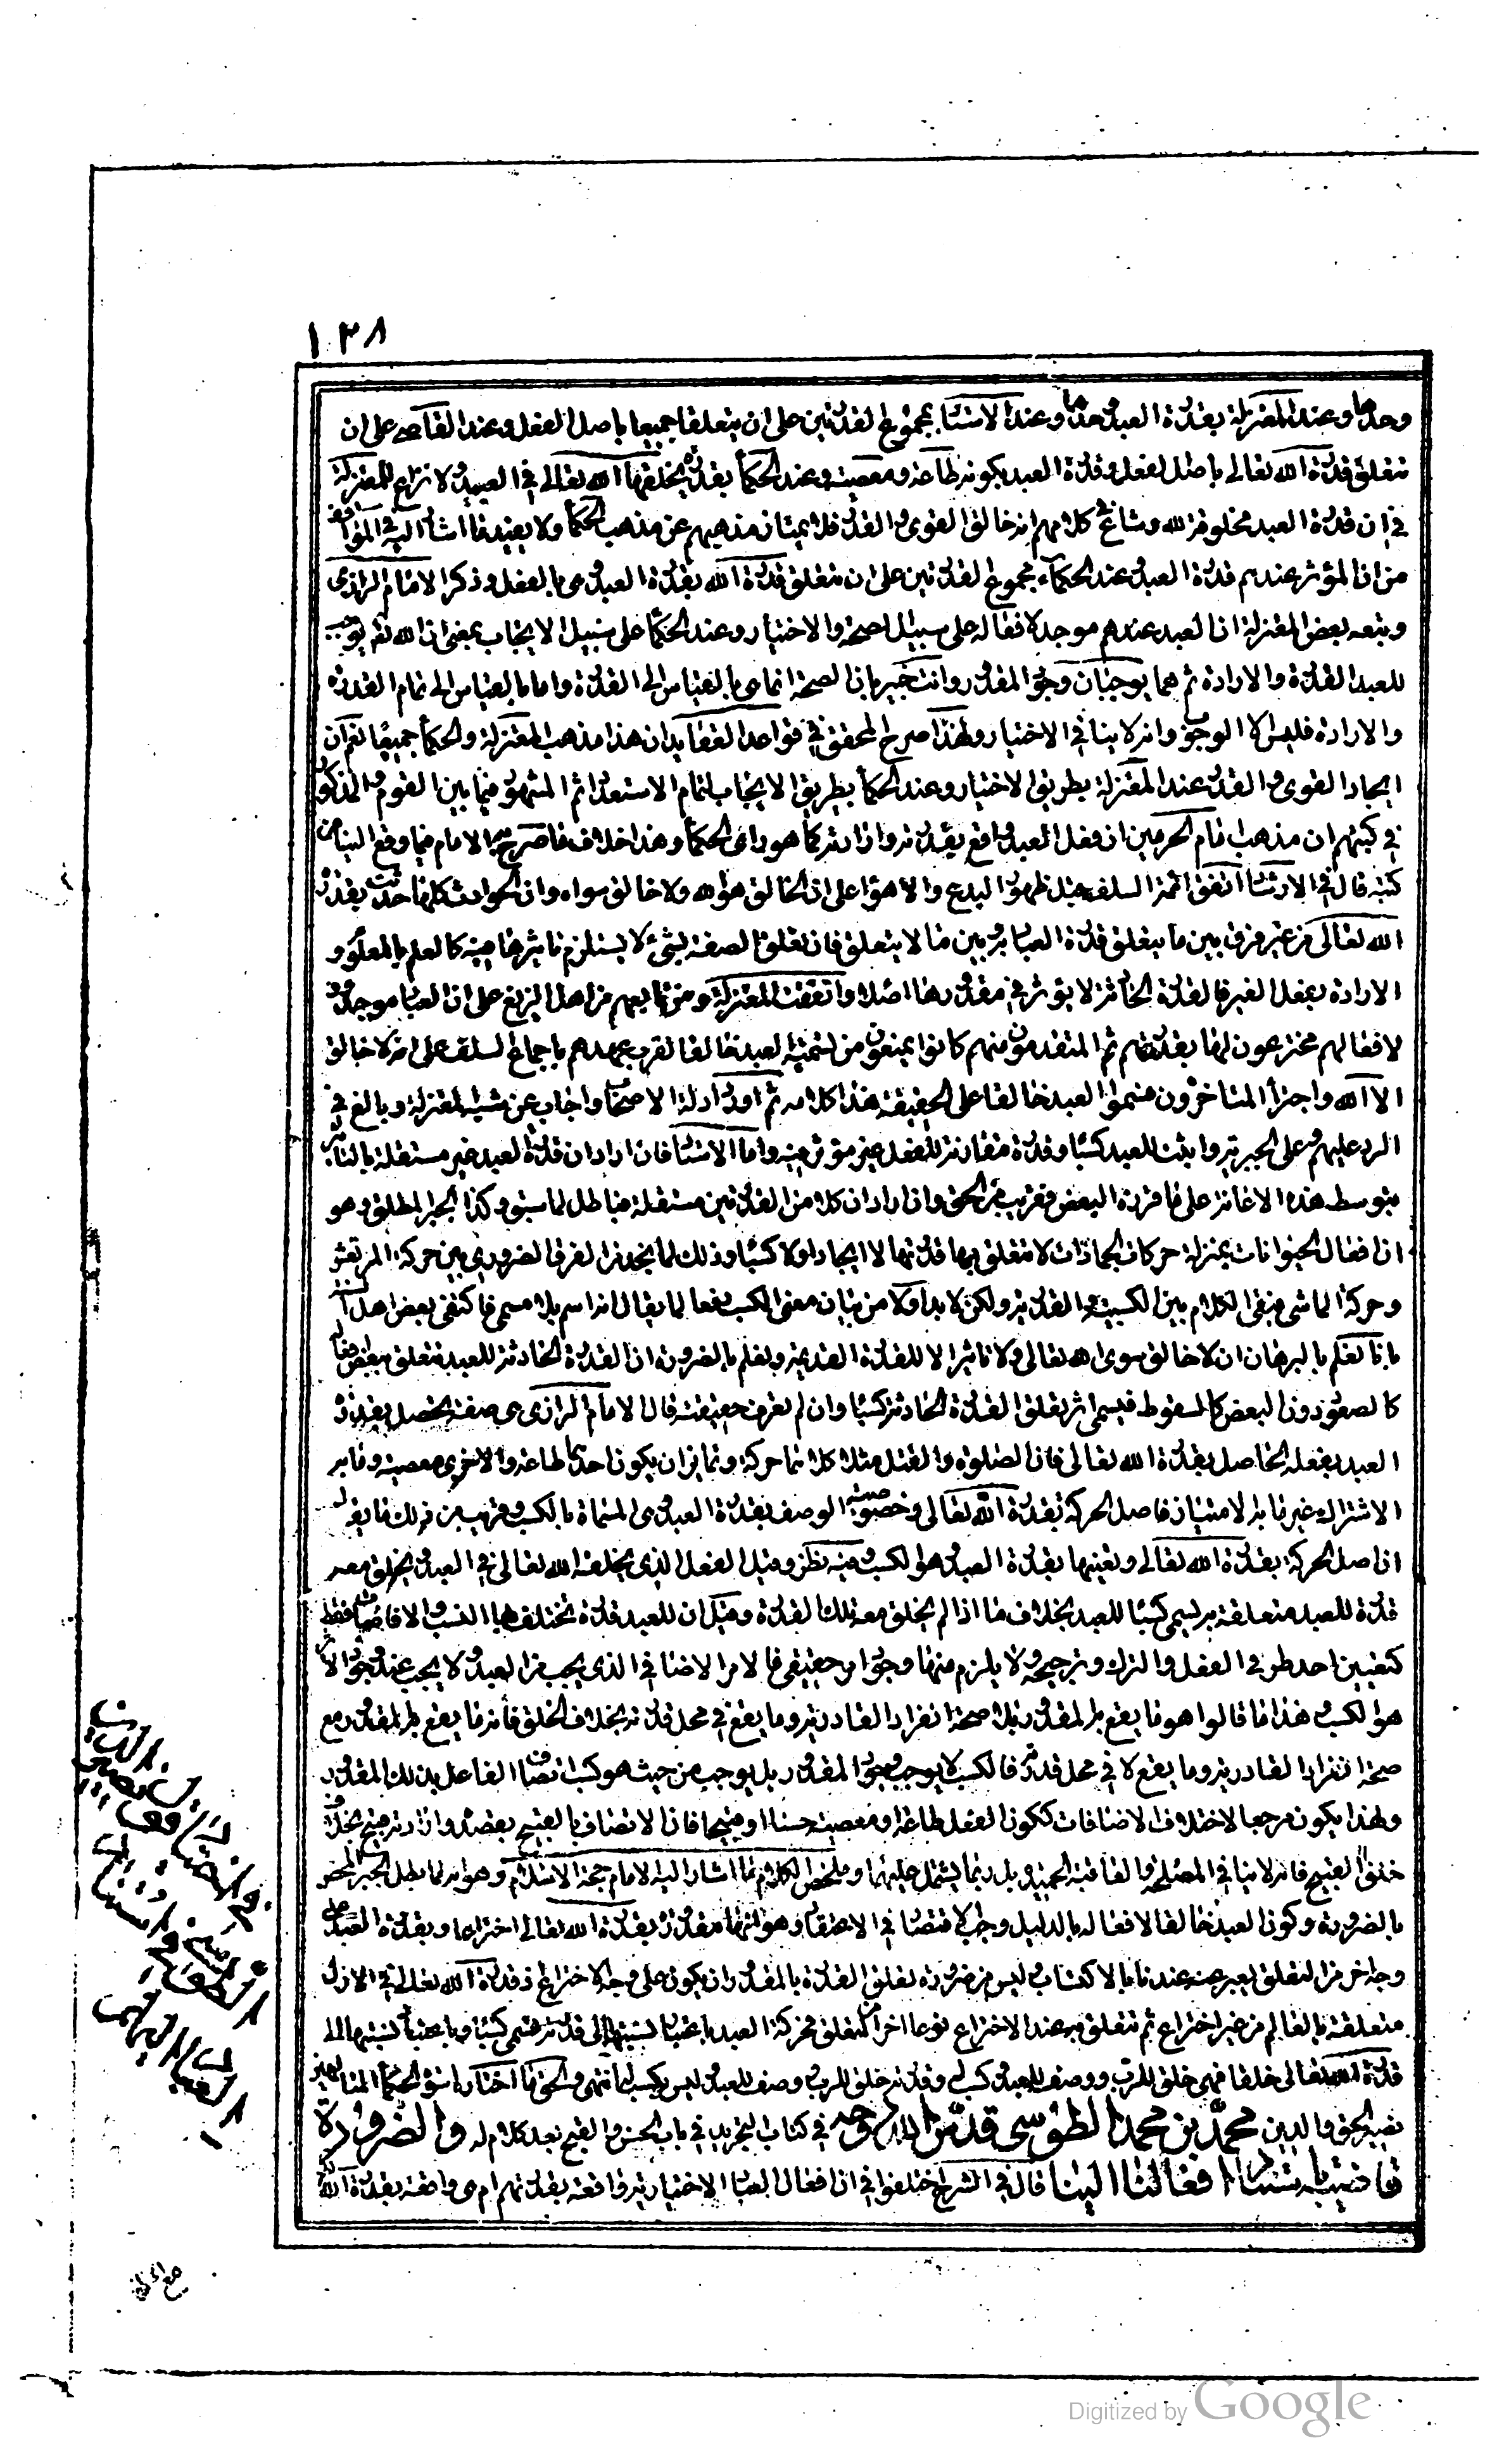 ١٢٨
وحدها وعند المعتزلة بقدرة العبد وحدها وعند الاستاد بمجموع القدرتين على ان يتعلقا جميعا باصل الفعل وعند القاضى على ان
تتعلق قدرة الله تعالى باصل الفعل وقدرة العبد بكونه طاعة ومعصية وعند الحكماء بقدرة يخلقها الله تعالى فى العبد ولا نزاع للمعتزلة
فى ان قدرة العبد مخلوقة لله وشاع فى كلامهم انه خالق القوى والقدر فلا يمتاز مذهبهم عن مذهب الحكماء ولا يفيد ما اشار اليه فى المواقف
من ان المؤثر عندهم قدرة العبد وعند الحكماء مجموع القدرتين على ان تتعلق قدرة الله بقدرة العبد وهى بالفعل وذكر الامام الرازى
وتبعه بعض المعتزلة ان العبد عندهم موجد لافعاله على سبيل الصحة والاختيار وعند الحكماء على سبيل الايجاب بمعنى ان الله تعالى يوجب
للعبد القدرة والارادة ثم هما يوجبان وجود المقدور وانت خبير بان الصحة انما هى بالقياس الى القدرة واما بالقياس الى تمام القدرة
والارادة فليس الا الوجوب وانه لا ينافى الاختيار ولهذا صرح المحقق فى قواعد العقايد ان هذا مذهب المعتزلة والحكماء جميعا نعم ان
ايجاد القوى والقدر عند المعتزلة بطريق الاختيار وعند الحكماء بطريق الايجاب لتمام الاستعداد ثم المشهور فيما بين القوم والمذكور
فى كتبهم ان مذهب امام الحرمين ان فعل العبد واقع بقدرته وارادته كما هو راى الحكماء وهذا خلاف ما صرح به الامام فيما وقع الينا من
كتبه قال فى الارشاد اتفق ائمة السلف قبل ظهور البدع والاهواء على ان الخالق هو الله ولا خالق سواه وان الحوادث كلها حدثت بقدرة
الله تعالى من غير فرق بين ما يتعلق قدرة العباد به وبين ما لا يتعلق فان تعلق الصفة بشئ لا يستلزم تاثيرها فيه كالعلم بالمعلوم و
الارادة بفعل الغير فالقدرة الحادثة لا يؤثر فى مقدورها اصلا واتفقت المعتزلة ومن تابعهم من اهل الزيغ على ان العباد موجدون
لافعالهم مخترعون لها بقدرتهم ثم المتقدمون منهم كانوا يمنعون من تسمية العبد خالقا لقرب عهدهم باجماع السلف على انه لا خالق
الا الله واجترأ المتاخرون فسموا العبد خالقا على الحقيقة هذا كلامه ثم اورد ادلة الاصحاب واجاب عن شبه المعتزلة وبالغ فى
الرد عليهم وعلى الجبرية واثبت للعبد كسبا وقدرة مقارنة للفعل غير مؤثرة فيه واما الاستاد فان اراد ان قدرة العبد غير مستقلة بالتاثير
بتوسط هذه الاعانة على ما قرره البعض فقريب من الحق وان اراد ان كلا من القدرتين مستقلة فباطل لما سبق وكذا الجبر المطلق وهو
ان افعال الحيوانات بمنزلة حركات الجمادات لا تتعلق بها قدرتها لا ايجادا ولا كسبا وذلك لما نجد من الفرق الضرورى بين حركة المرتعش
وحركة الماشى فبقى الكلام بين الكسبية والقدرية ولكن لا بد اولا من بيان معنى الكسب دفعا لما يقال انه اسم بلا مسمى فاكتفى بعض اهل السنة
بانا نعلم بالبرهان ان لا خالق سوى الله تعالى ولا تاثير الا للقدرة القديمة ونعلم بالضرورة ان القدرة الحادثة للعبد تتعلق ببعض افعاله
كالصعود دون البعض كالسقوط فيسمى اثر تعلق القدرة الحادثة كسبا وان لم نعرف حقيقته قال الامام الرازى هى صفة تحصل بقدرة
العبد بفعله الحاصل بقدرة الله تعالى فان الصلوة والقتل مثلا كلاهما حركة وتمايزان بكون احدهما طاعة والاخرى معصية وما به
الاشتراك غير ما به الامتياز فاصل الحركة بقدرة الله تعالى وخصوصية الوصف بقدرة العبد وهى المسماة بالكسب وقريب من ذلك ما يقال
ان اصل الحركة بقدرة الله تعالى وتعينها بقدرة العبد وهو الكسب وفيه نظر وقيل الفعل الذى يخلقه الله تعالى فى العبد ويخلق معه
قدرة للعبد متعلقة به يسمى كسبا للعبد بخلاف ما اذا لم يخلق معه تلك القدرة وقيل ان للعبد قدرة تختلف بها النسب والاضافات فقط
كتعيين احد طرفى الفعل والترك وترجيحه ولا يلزم منها وجود امر حقيقى فالامر الاضافى الذى يجب من العبد ولا يجب عند وجود الاثر
هو الكسب وهذا ما قالوا هو ما يقع به المقدور بلا صحة انفراد القادر به وما يقع فى محل قدرته بخلاف الخلق فانه ما يقع به المقدور مع
صحة انفراد القادر به وما يقع لا فى محل قدرته فالكسب لا يوجب وجود المقدور بل يوجب من حيث هو كسب اتصاف الفاعل بذلك المقدور
ولهذا يكون مرجعا لاختلاف الاضافات ككون الفعل طاعة او معصية حسنا او قبيحا فان الاتصاف بالقبيح بقصده وارادته قبيح بخلاف
خلق القبيح فانه لا ينافى المصلحة والعاقبة الحميدة بل ربما يشتمل عليهما وملخص الكلام ما اشار اليه الامام حجة الاسلام وهو انه لما بطل الجبر المحض
بالضرورة وكون العبد خالقا لافعاله بالدليل وجب الاقتصاد فى الاعتقاد وهو انها مقدورة بقدرة الله تعالى اختراعا وبقدرة العبد على
وجه اخر من التعلق يعبر عنه عندنا بالاكتساب وليس من ضرورة تعلق القدرة بالمقدور ان يكون على وجه الاختراع اذ قدرة الله تعالى فى الازل
متعلقة بالعالم من غير اختراع ثم تتعلق به عند الاختراع نوعا اخر من التعلق فحركة العبد باعتبار نسبتها الى قدرته تسمى كسبا وباعتبار نسبتها الى
قدرة الله تعالى خلقا فهى خلق للرب ووصف للعبد وكسب له وقدرته خلق للرب ووصف للعبد وليس بكسب له انتهى والحق ما اختاره استاد الحكماء المتالهين
نصير الحق والدين محمد بن محمد الطوسى قدس الله روحه فى كتاب التجريد فى باب الحسن والقبح بعد كلام له والضرورة
قاضية باستناد افعالنا الينا قال فى الشرح اختلفوا فى ان افعال العباد الاختيارية واقعة بقدرتهم ام هى واقعة بقدرة الله
Digitized by Google